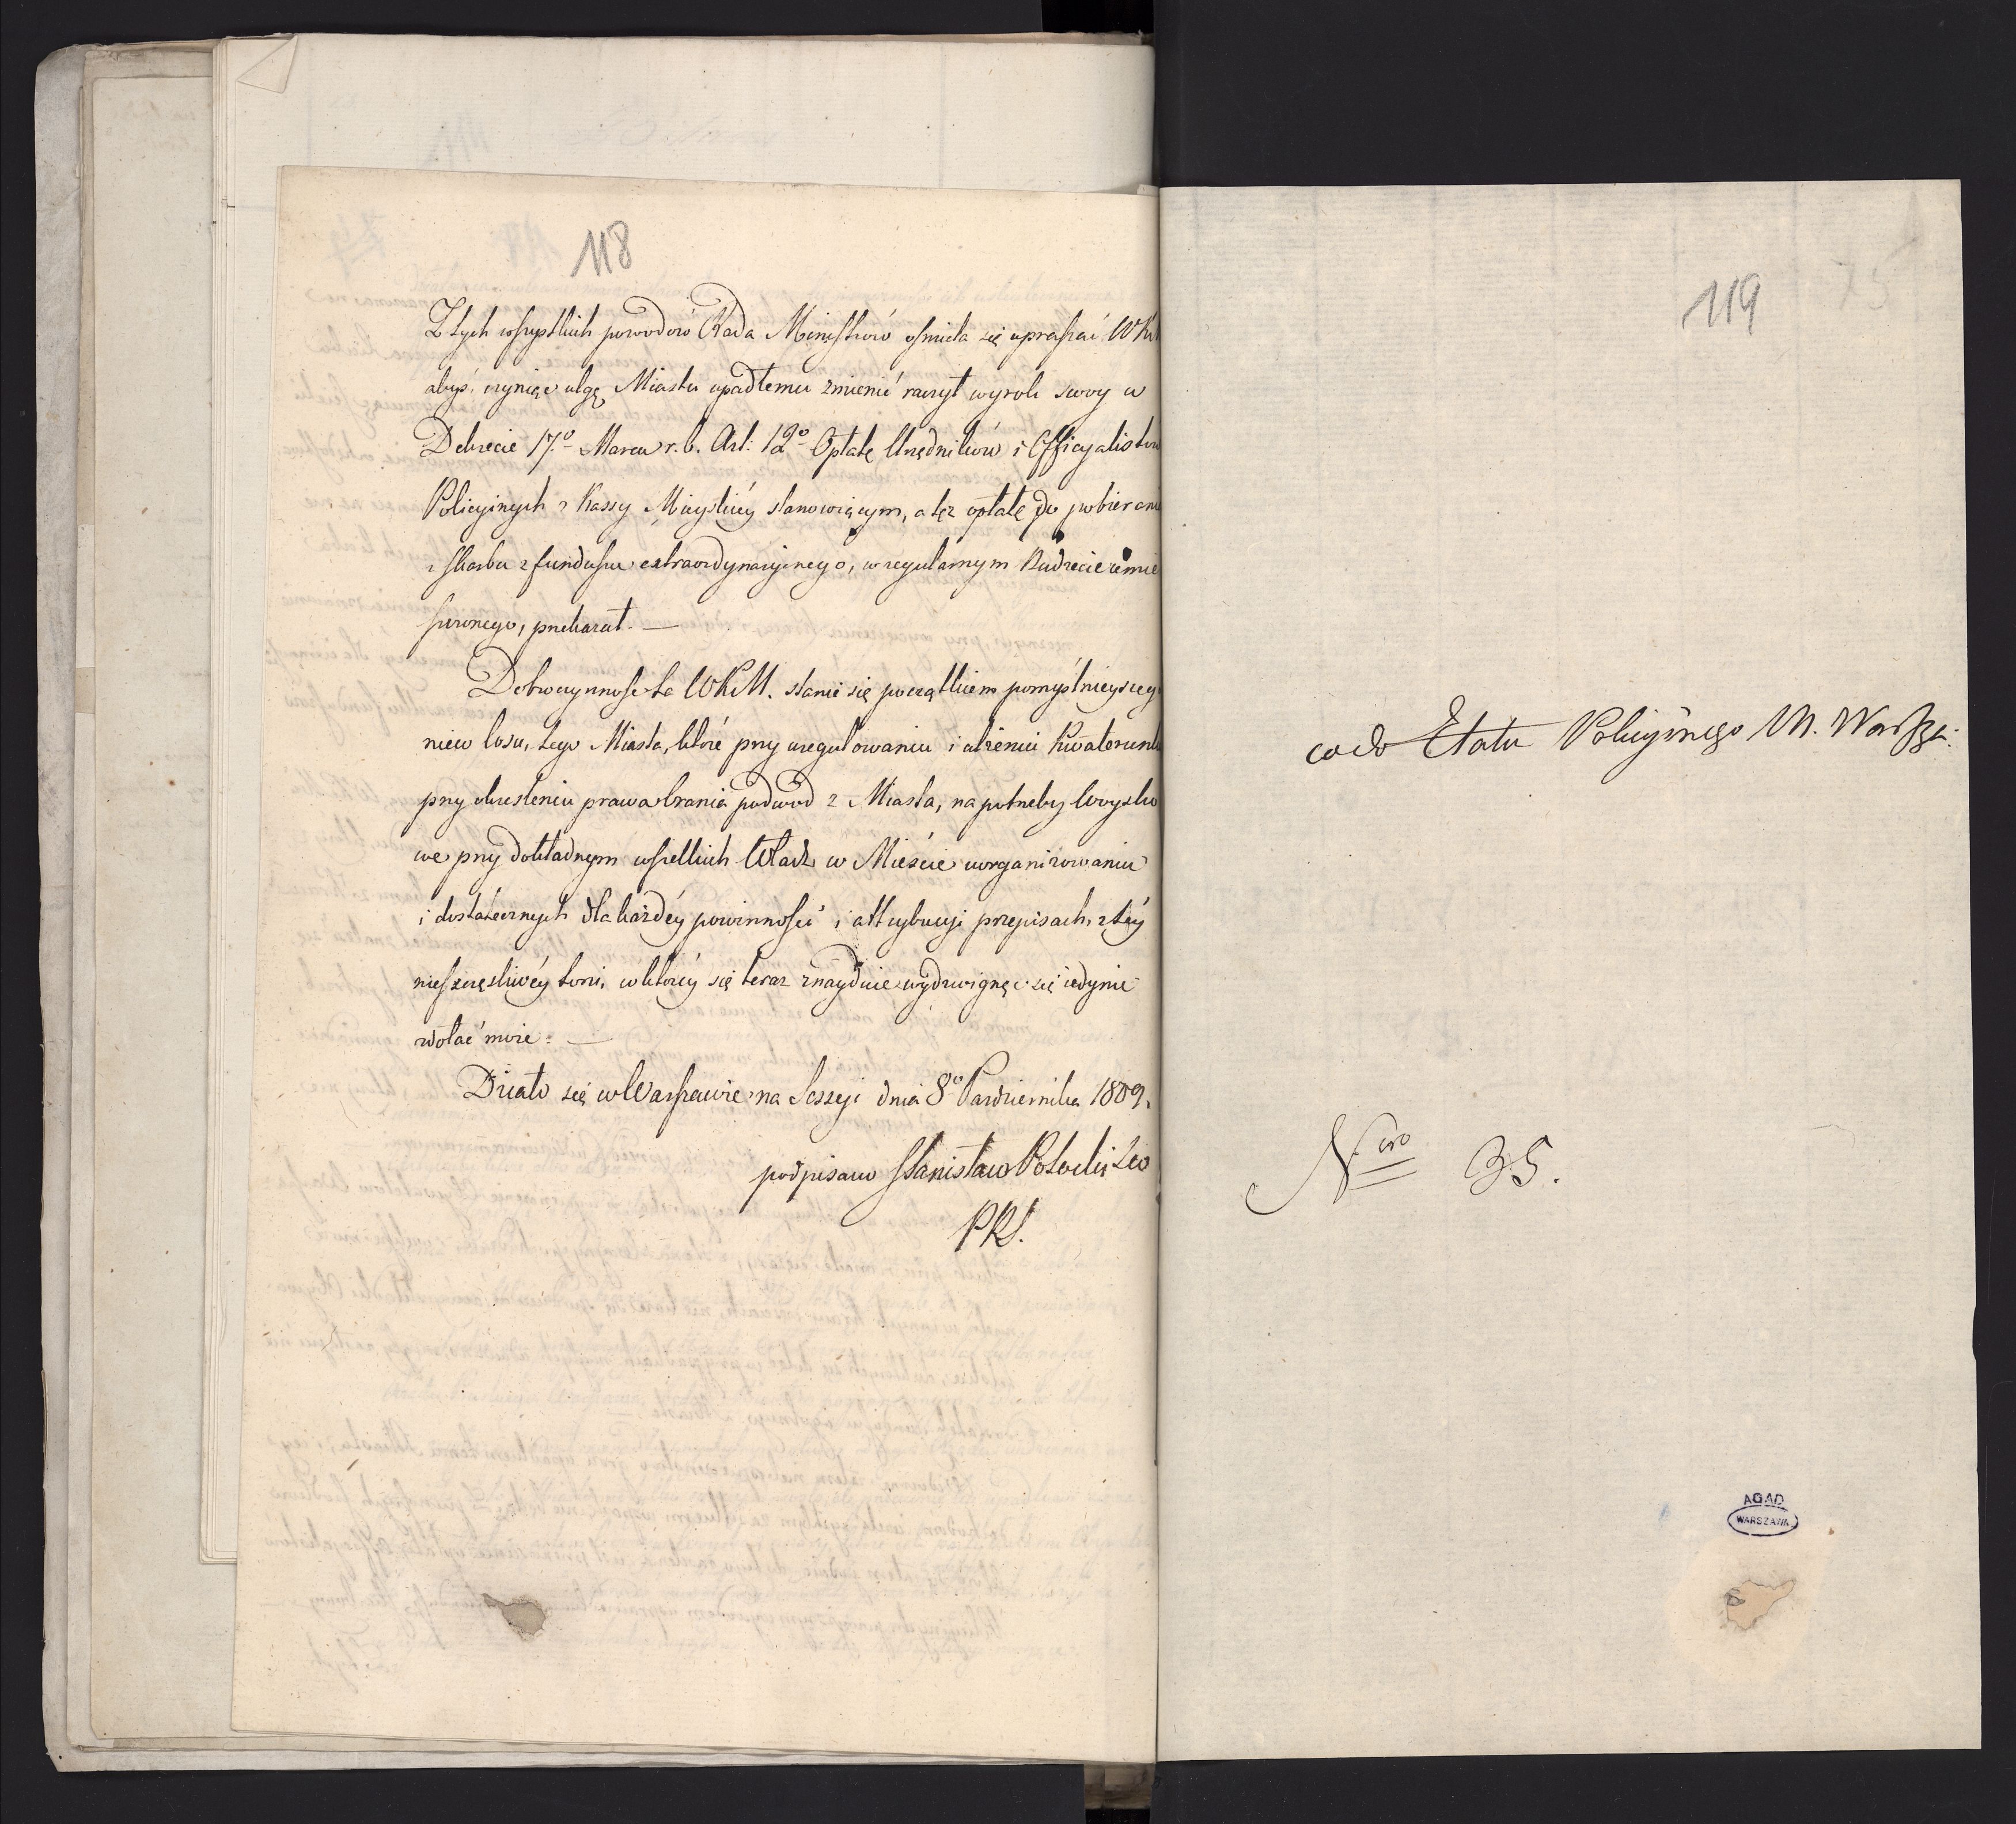 118
Z tych wszystkich powodów Rada Ministrów ośmiela się upraszać WK
abyś, czyniąc ulgę Miastu upadłemu zmienić raczył wyrok swoy w
Dekrecie 17.º Marca r. b. Art: 12º Opłatę Urzędników i Officyalistów
Policyinych z Kassy Mieyskiéy stanowiącym, a tęż opłatę do pobierani
z Skarbu z funduszu extraordynaryinego, w regularnym Budżecie umie
szczonego, przekazał. —
Dobroczynność ta WKM. stanie się początkiem pomyślnieyszeg
niew losu, tego Miasta, które przy uregulowaniu i ulżeniu Kwaterunk
przy określeniu prawa brania podwod z Miasta, na potrzeby Woysko
we przy dokładnym wszelkich Władz w Mieście uorganizowaniu
i dostatecznych dla każdéy powinności i attrybucyi przepisach, z téy
nieszczęśliwéy toni, w któréy się teraz znayduie wydzwignąć się iedynie
zdołać może. —
Działo się w Warszawie na Sessyi dnia 8º Pazdziernika 1809.
podpisano Stanisław Potocki
PRS.
119
75
co do Etatu Policyinego M. Warsza:
Nro 35.
AGAD
WARSZAWA